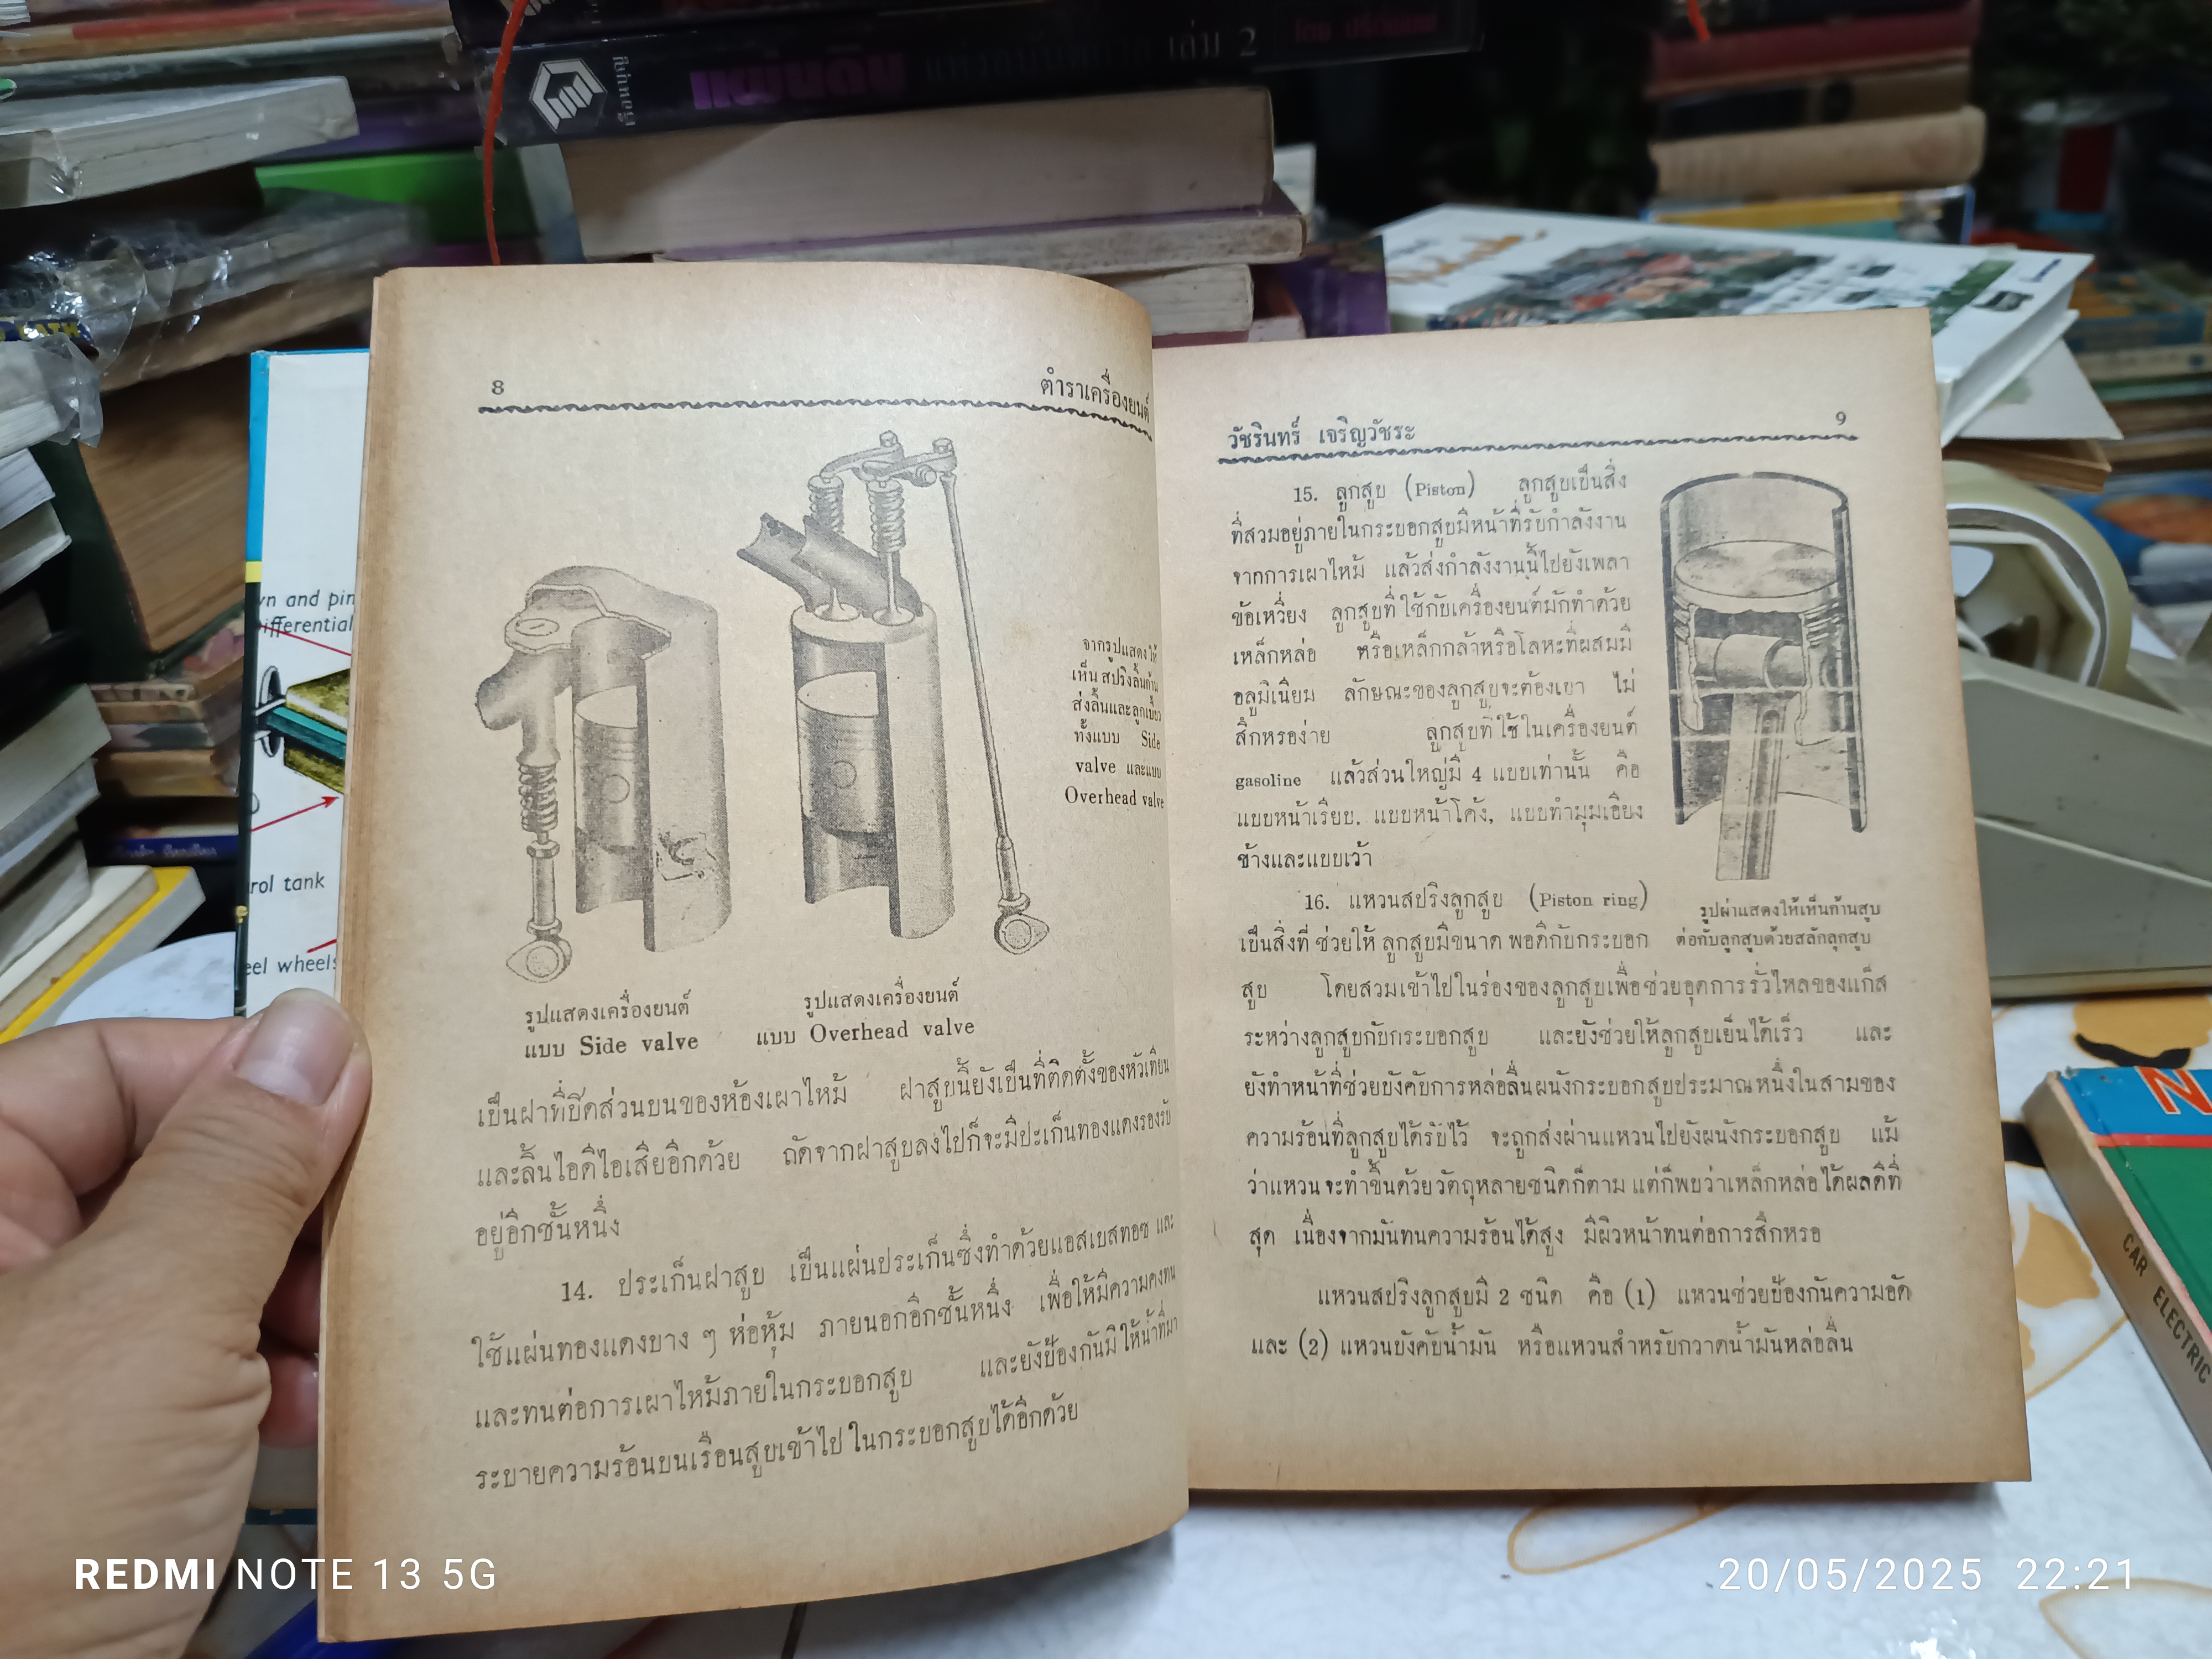 เล่ม 2
8
ตำราเครื่องยนต์
จากรูปแสดงให้
เห็นสปริงลิ้นก้าน
ส่งลิ้นและลูกเบี้ยว
ทั้งแบบ Side
valve และแบบ
Overhead valve
รูปแสดงเครื่องยนต์
แบบ Side valve
รูปแสดงเครื่องยนต์
แบบ Overhead valve
เป็นฝาที่ปิดส่วนบนของห้องเผาไหม้ ฝาสูบนี้ยังเป็นที่ติดตั้งของหัวเทียน
และลิ้นไอดีไอเสียอีกด้วย ถัดจากฝาสูบลงไปก็จะมีปะเก็นทองแดงรองรับ
อยู่อีกชั้นหนึ่ง
14. ประเก็นฝาสูบ เป็นแผ่นประเก็นซึ่งทำด้วยแอสเบสทอซ และ
ใช้แผ่นทองแดงบาง ๆ ห่อหุ้ม ภายนอกอีกชั้นหนึ่ง เพื่อให้มีความคงทน
และทนต่อการเผาไหม้ภายในกระบอกสูบ และยังป้องกันมิให้น้ำที่มา
ระบายความร้อนบนเรือนสูบเข้าไปในกระบอกสูบได้อีกด้วย
วัชรินทร์ เจริญวัชระ
9
15. ลูกสูบ (Piston) ลูกสูบเป็นสิ่ง
ที่สวมอยู่ภายในกระบอกสูบมีหน้าที่รับกำลังงาน
จากการเผาไหม้ แล้วส่งกำลังงานนี้ไปยังเพลา
ข้อเหวี่ยง ลูกสูบที่ใช้กับเครื่องยนต์มักทำด้วย
เหล็กหล่อ หรือเหล็กกล้าหรือโลหะที่ผสมมี
อลูมิเนียม ลักษณะของลูกสูบจะต้องเบา ไม่
สึกหรอง่าย ลูกสูบที่ใช้ในเครื่องยนต์
gasoline แล้วส่วนใหญ่มี 4 แบบเท่านั้น คือ
แบบหน้าเรียบ, แบบหน้าโค้ง, แบบทำมุมเอียง
ข้างและแบบเว้า
รูปผ่าแสดงให้เห็นก้านสูบ
ต่อกับลูกสูบด้วยสลักลูกสูบ
16. แหวนสปริงลูกสูบ (Piston ring)
เป็นสิ่งที่ช่วยให้ลูกสูบมีขนาดพอดีกับกระบอก
สูบ โดยสวมเข้าไปในร่องของลูกสูบเพื่อช่วยอุดการรั่วไหลของแก๊ส
ระหว่างลูกสูบกับกระบอกสูบ และยังช่วยให้ลูกสูบเย็นได้เร็ว และ
ยังทำหน้าที่ช่วยบังคับการหล่อลื่นผนังกระบอกสูบประมาณหนึ่งในสามของ
ความร้อนที่ลูกสูบได้รับไว้ จะถูกส่งผ่านแหวนไปยังผนังกระบอกสูบ แม้
ว่าแหวนจะทำขึ้นด้วยวัตถุหลายชนิดก็ตาม แต่ก็พบว่าเหล็กหล่อได้ผลดีที่
สุด เนื่องจากมันทนความร้อนได้สูง มีผิวหน้าทนต่อการสึกหรอ
แหวนสปริงลูกสูบมี 2 ชนิด คือ (1) แหวนช่วยป้องกันความอัด
และ (2) แหวนบังคับน้ำมัน หรือแหวนสำหรับกวาดน้ำมันหล่อลื่น
CAR ELECTRIC
REDMI NOTE 13 5G
20/05/2025 22:21